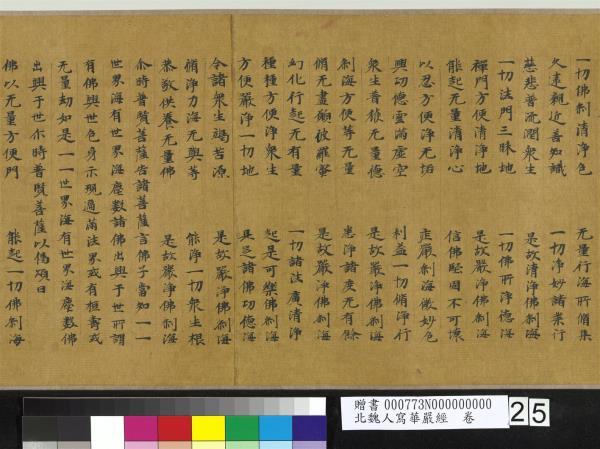 一切佛刹清淨色　无量行海所脩集
久遠親近善知識　一切淨妙諸業行
慈悲普流潤衆生　是故清淨佛刹海
一切法門三昧地　一切佛所淨德海
禪門方便清淨地　是故嚴淨佛刹海
能起无量清淨心　信佛堅固不可壞
以忍方便淨无垢　莊嚴刹海微妙色
興功德雲滿虛空　利益一切脩淨行
衆生普據无量德　是故嚴淨佛刹海
刹海方便等无量　悉淨諸度无有餘
脩无盡願波羅蜜　是故嚴淨佛刹海
幻化行起无有量　一切諸法廣清淨
種種方便淨衆生　起是可樂佛刹海
方便嚴淨一切地　具足諸佛功德海
令諸衆生竭苦源　是故嚴淨佛刹海
脩淨力海无與等　能淨一切衆生根
恭敬供養无量佛　是故嚴淨佛刹海
尒時普賢菩薩告諸菩薩言佛子當知一一
世界海有世界海塵數諸佛出興于世所謂
有佛興世色身示現遍滿法界或有短壽或
无量劫如是一一世界海有世界海塵數佛
出興于世尒時普賢菩薩以偈頌曰
佛以无量方便門　能起一切佛刹海
贈書 000773N000000000
北魏人寫華嚴經　卷
25